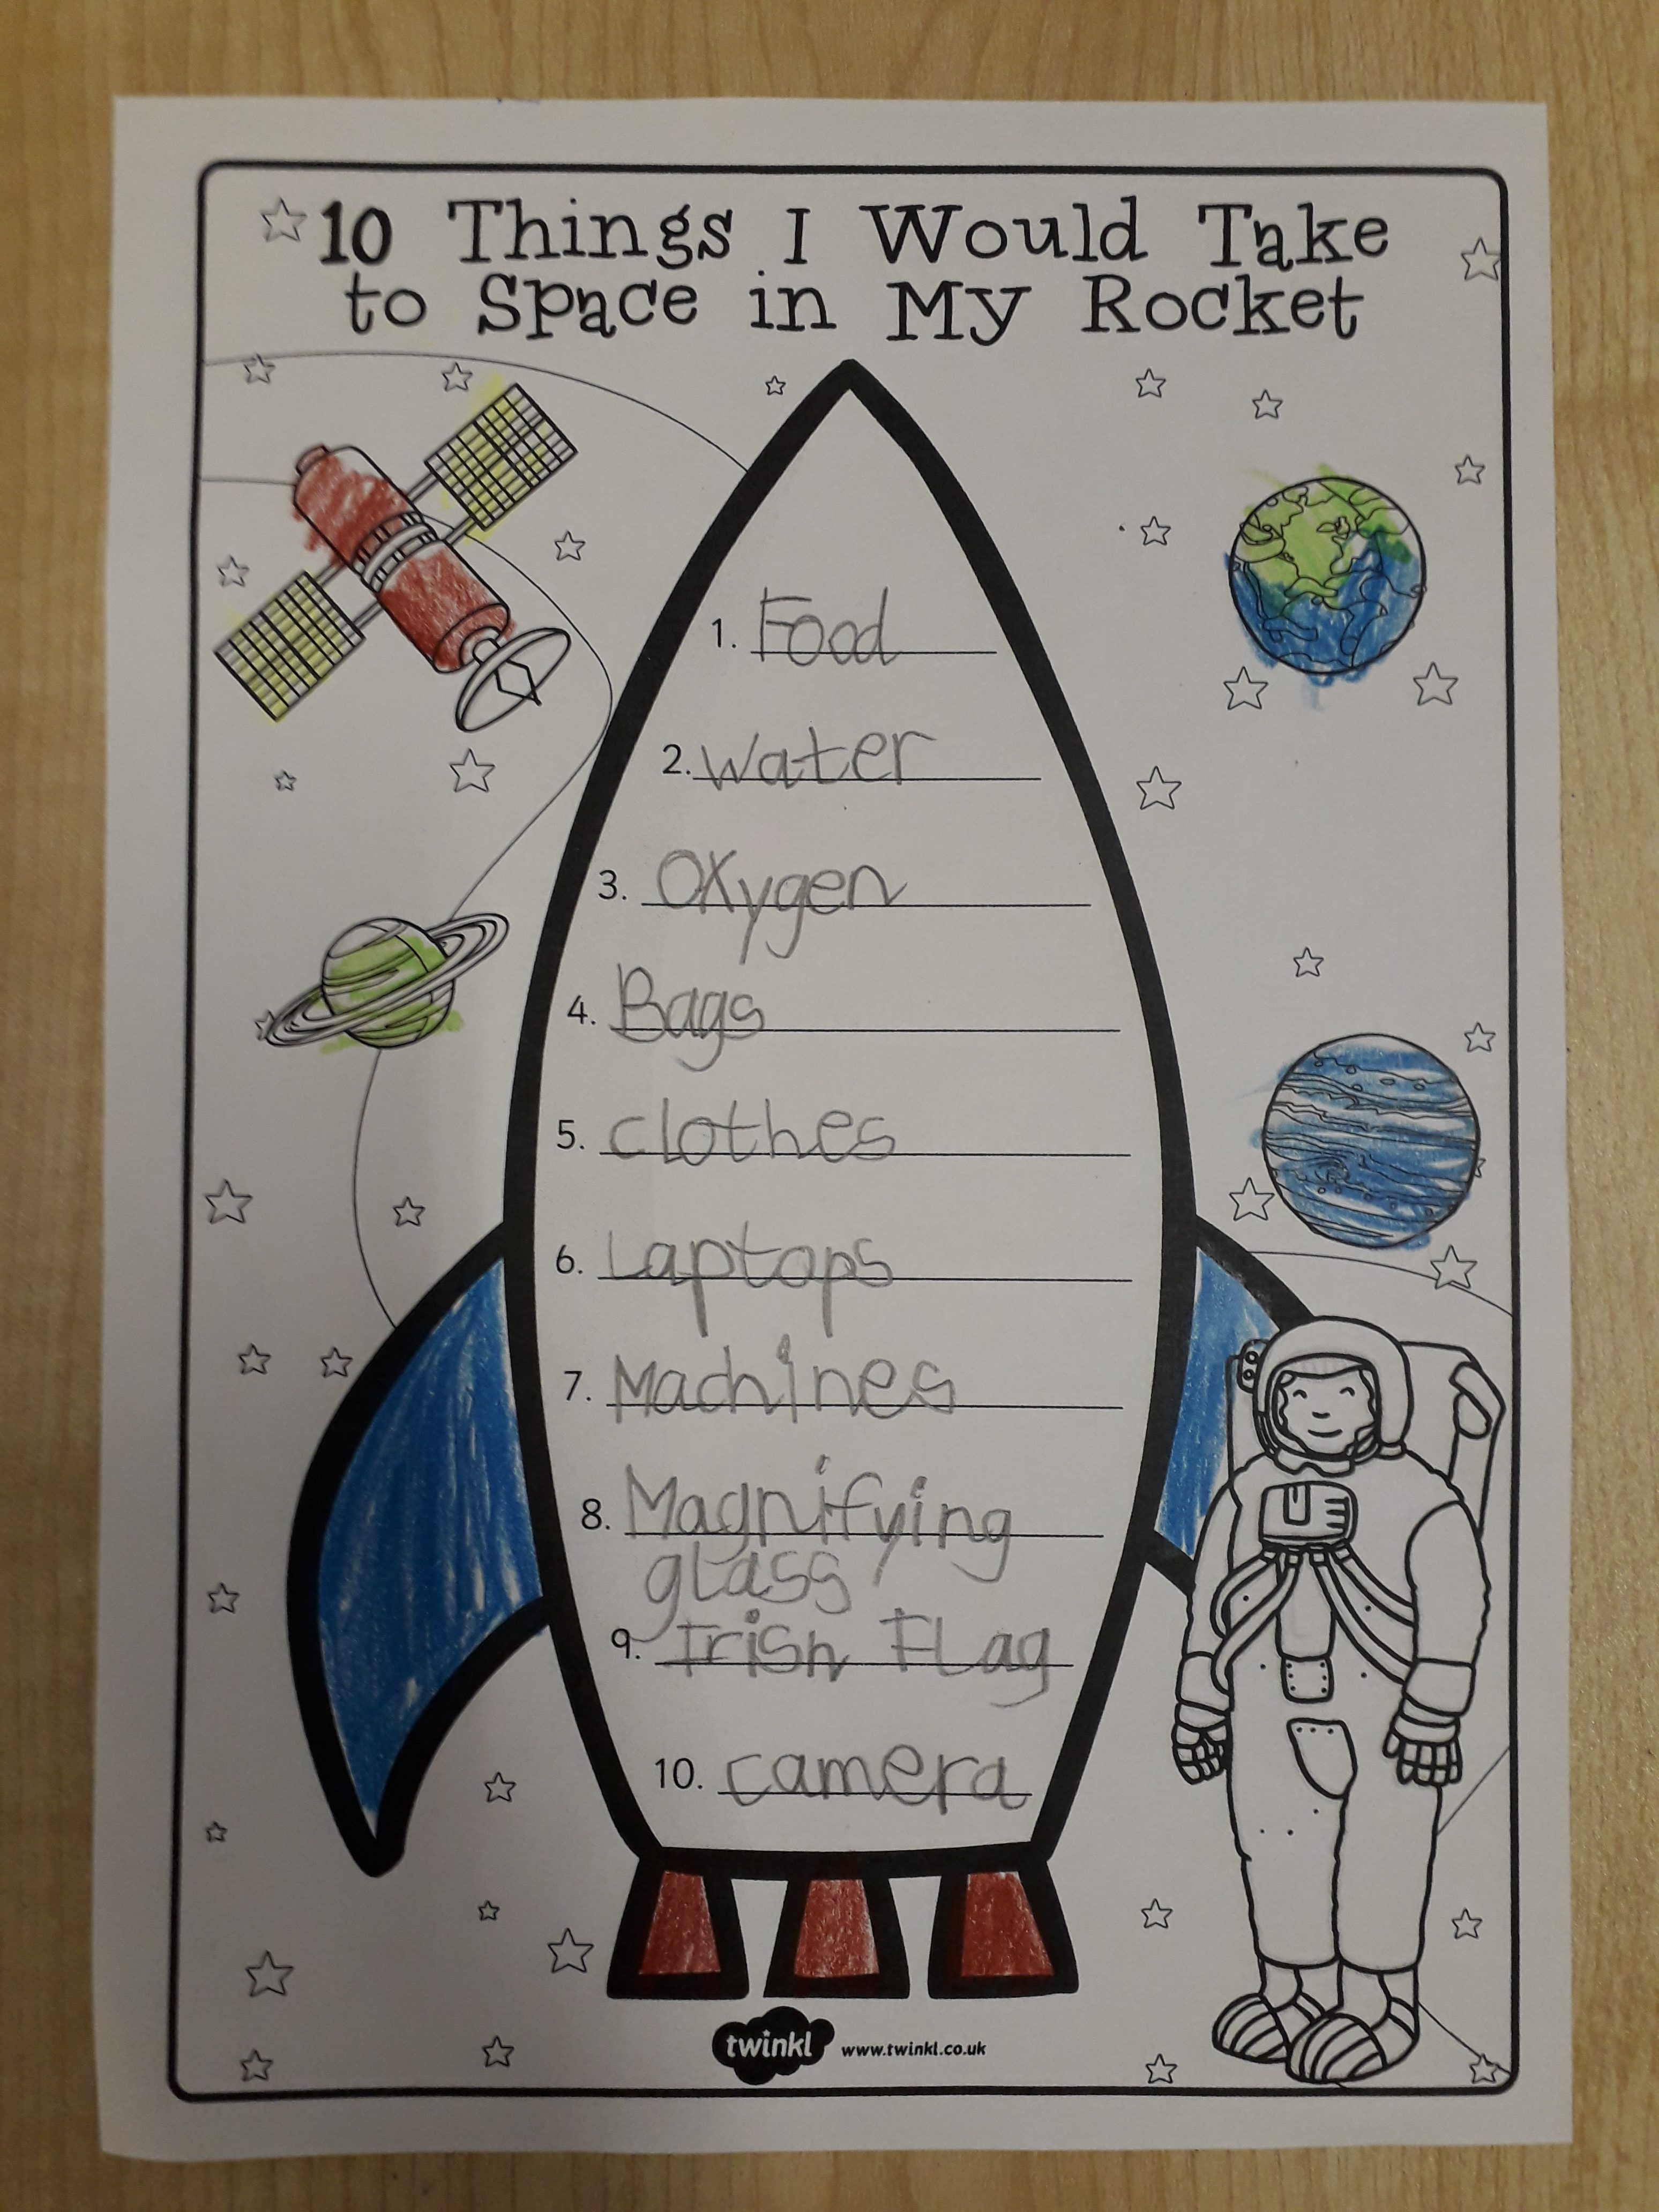 10 Things I Would Take
to Space in My Rocket
1. Food
2. Water
3. Oxygen
4. Bags
5. clothes
6. Laptops
7. Machines
8. Magnifying
glass
9. Irish FLag
10. camera
twinkl www.twinkl.co.uk